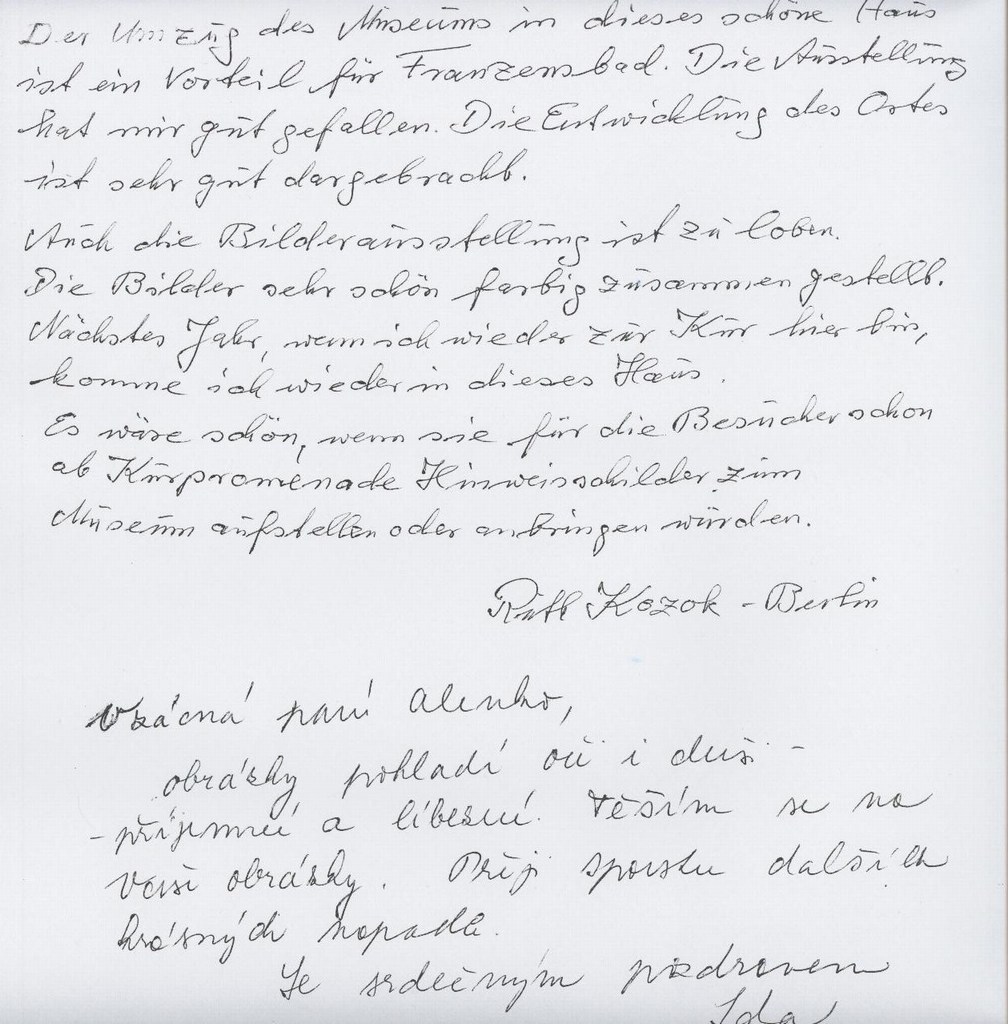 Der Umzug des Museums in dieses schöne Haus
ist ein Vorteil für Franzensbad. Die Ausstellung
hat mir gut gefallen. Die Entwicklung des Ortes
ist sehr gut dargebracht.
Auch die Bilderausstellung ist zu loben.
Die Bilder sehr schön farbig zusammen gestellt.
Nächstes Jahr, wenn ich wieder zur Kur hier bin,
komme ich wieder in dieses Haus.
Es wäre schön, wenn sie für die Besucher schon
ab Kurpromenade Hinweisschilder zum
Museum aufstellen oder anbringen würden.
Ruth Kozok - Berlin
Vzácná paní Alenko,
obrázky pohladí oči i duši -
- příjemné a líbezné. Těším se na
Vaši obrázky. Přeji spoustu dalších
krásných nápadů.
Se srdečným pozdravem
Ida